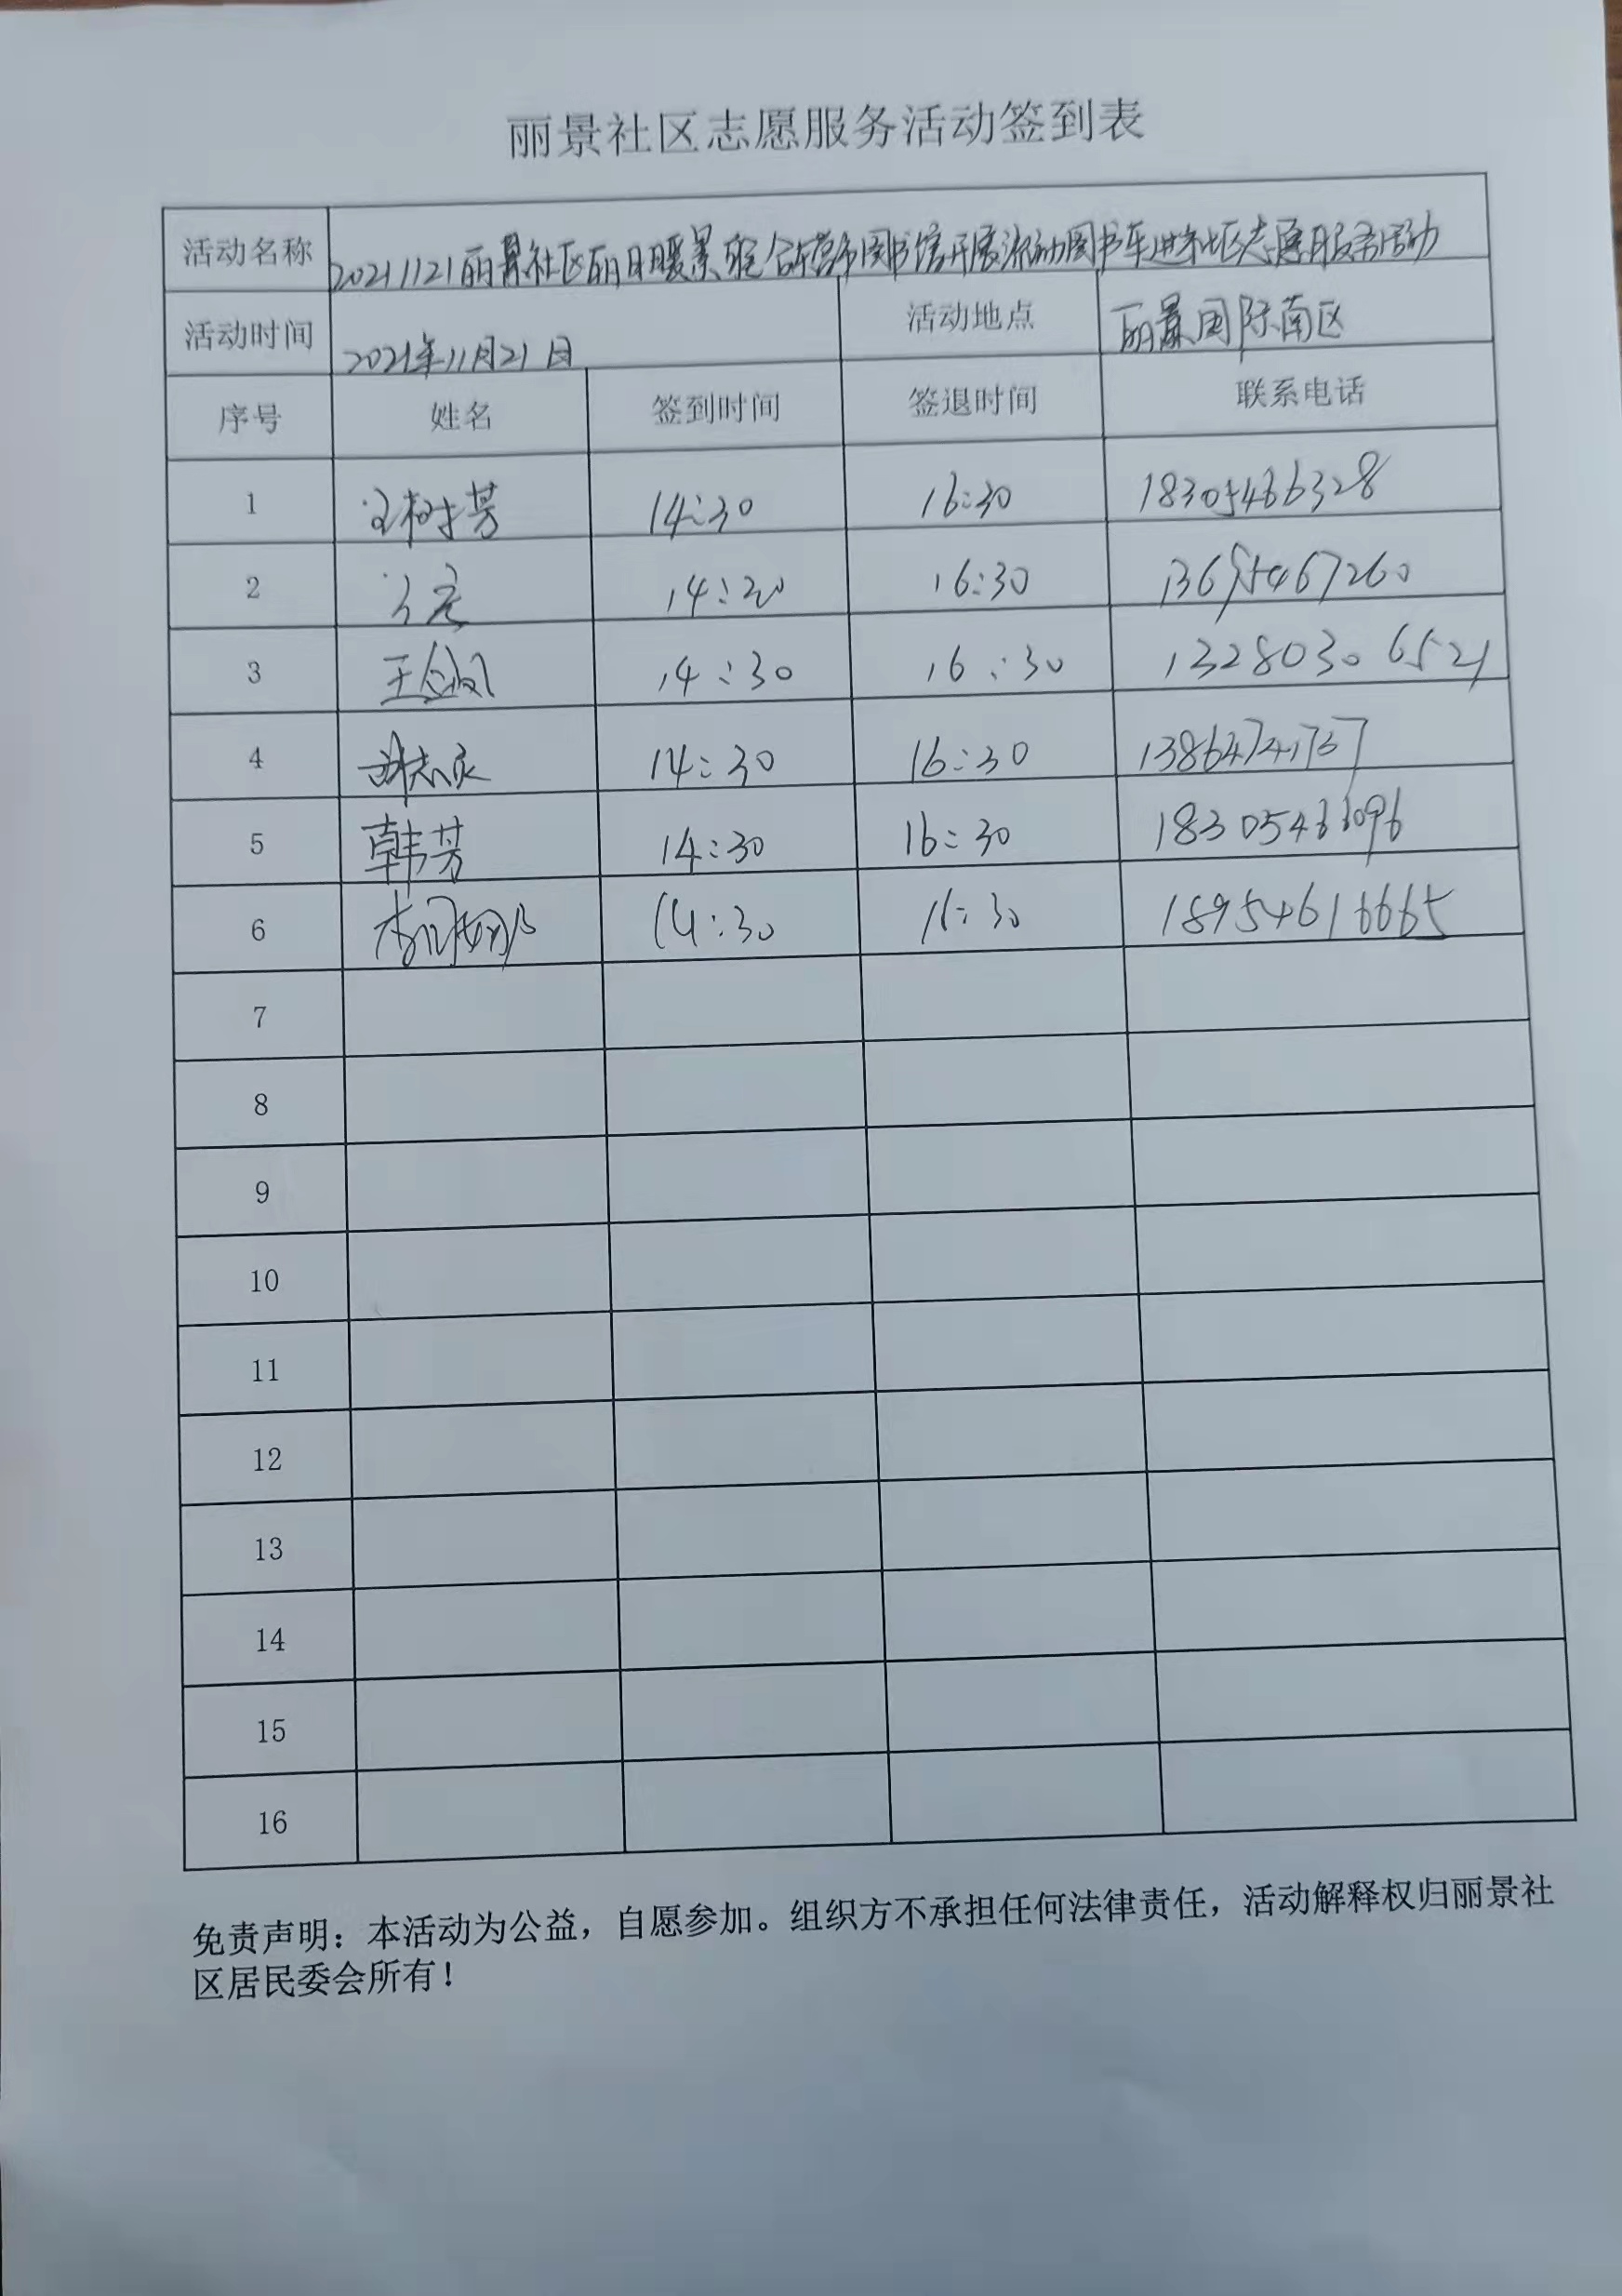 丽景社区志愿服务活动签到表
活动名称 20211121丽景社区丽日暖景联合东营市图书馆开展流动图书车进社区志愿服务活动
活动时间 2021年11月21日 活动地点 丽景国际南区
序号 姓名 签到时间 签退时间 联系电话
1 14:30 16:30 18305466328
2 14:30 16:30
3 14:30 16:30 13280306521
4 14:30 16:30
5 韩芳 14:30 16:30
6 14:30 16:30 18954616665
7
8
9
10
11
12
13
14
15
16
免责声明：本活动为公益，自愿参加。组织方不承担任何法律责任，活动解释权归丽景社
区居民委会所有！